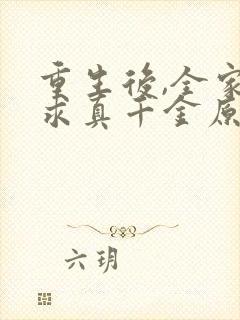 重生後,全家
求真千金原
六玥